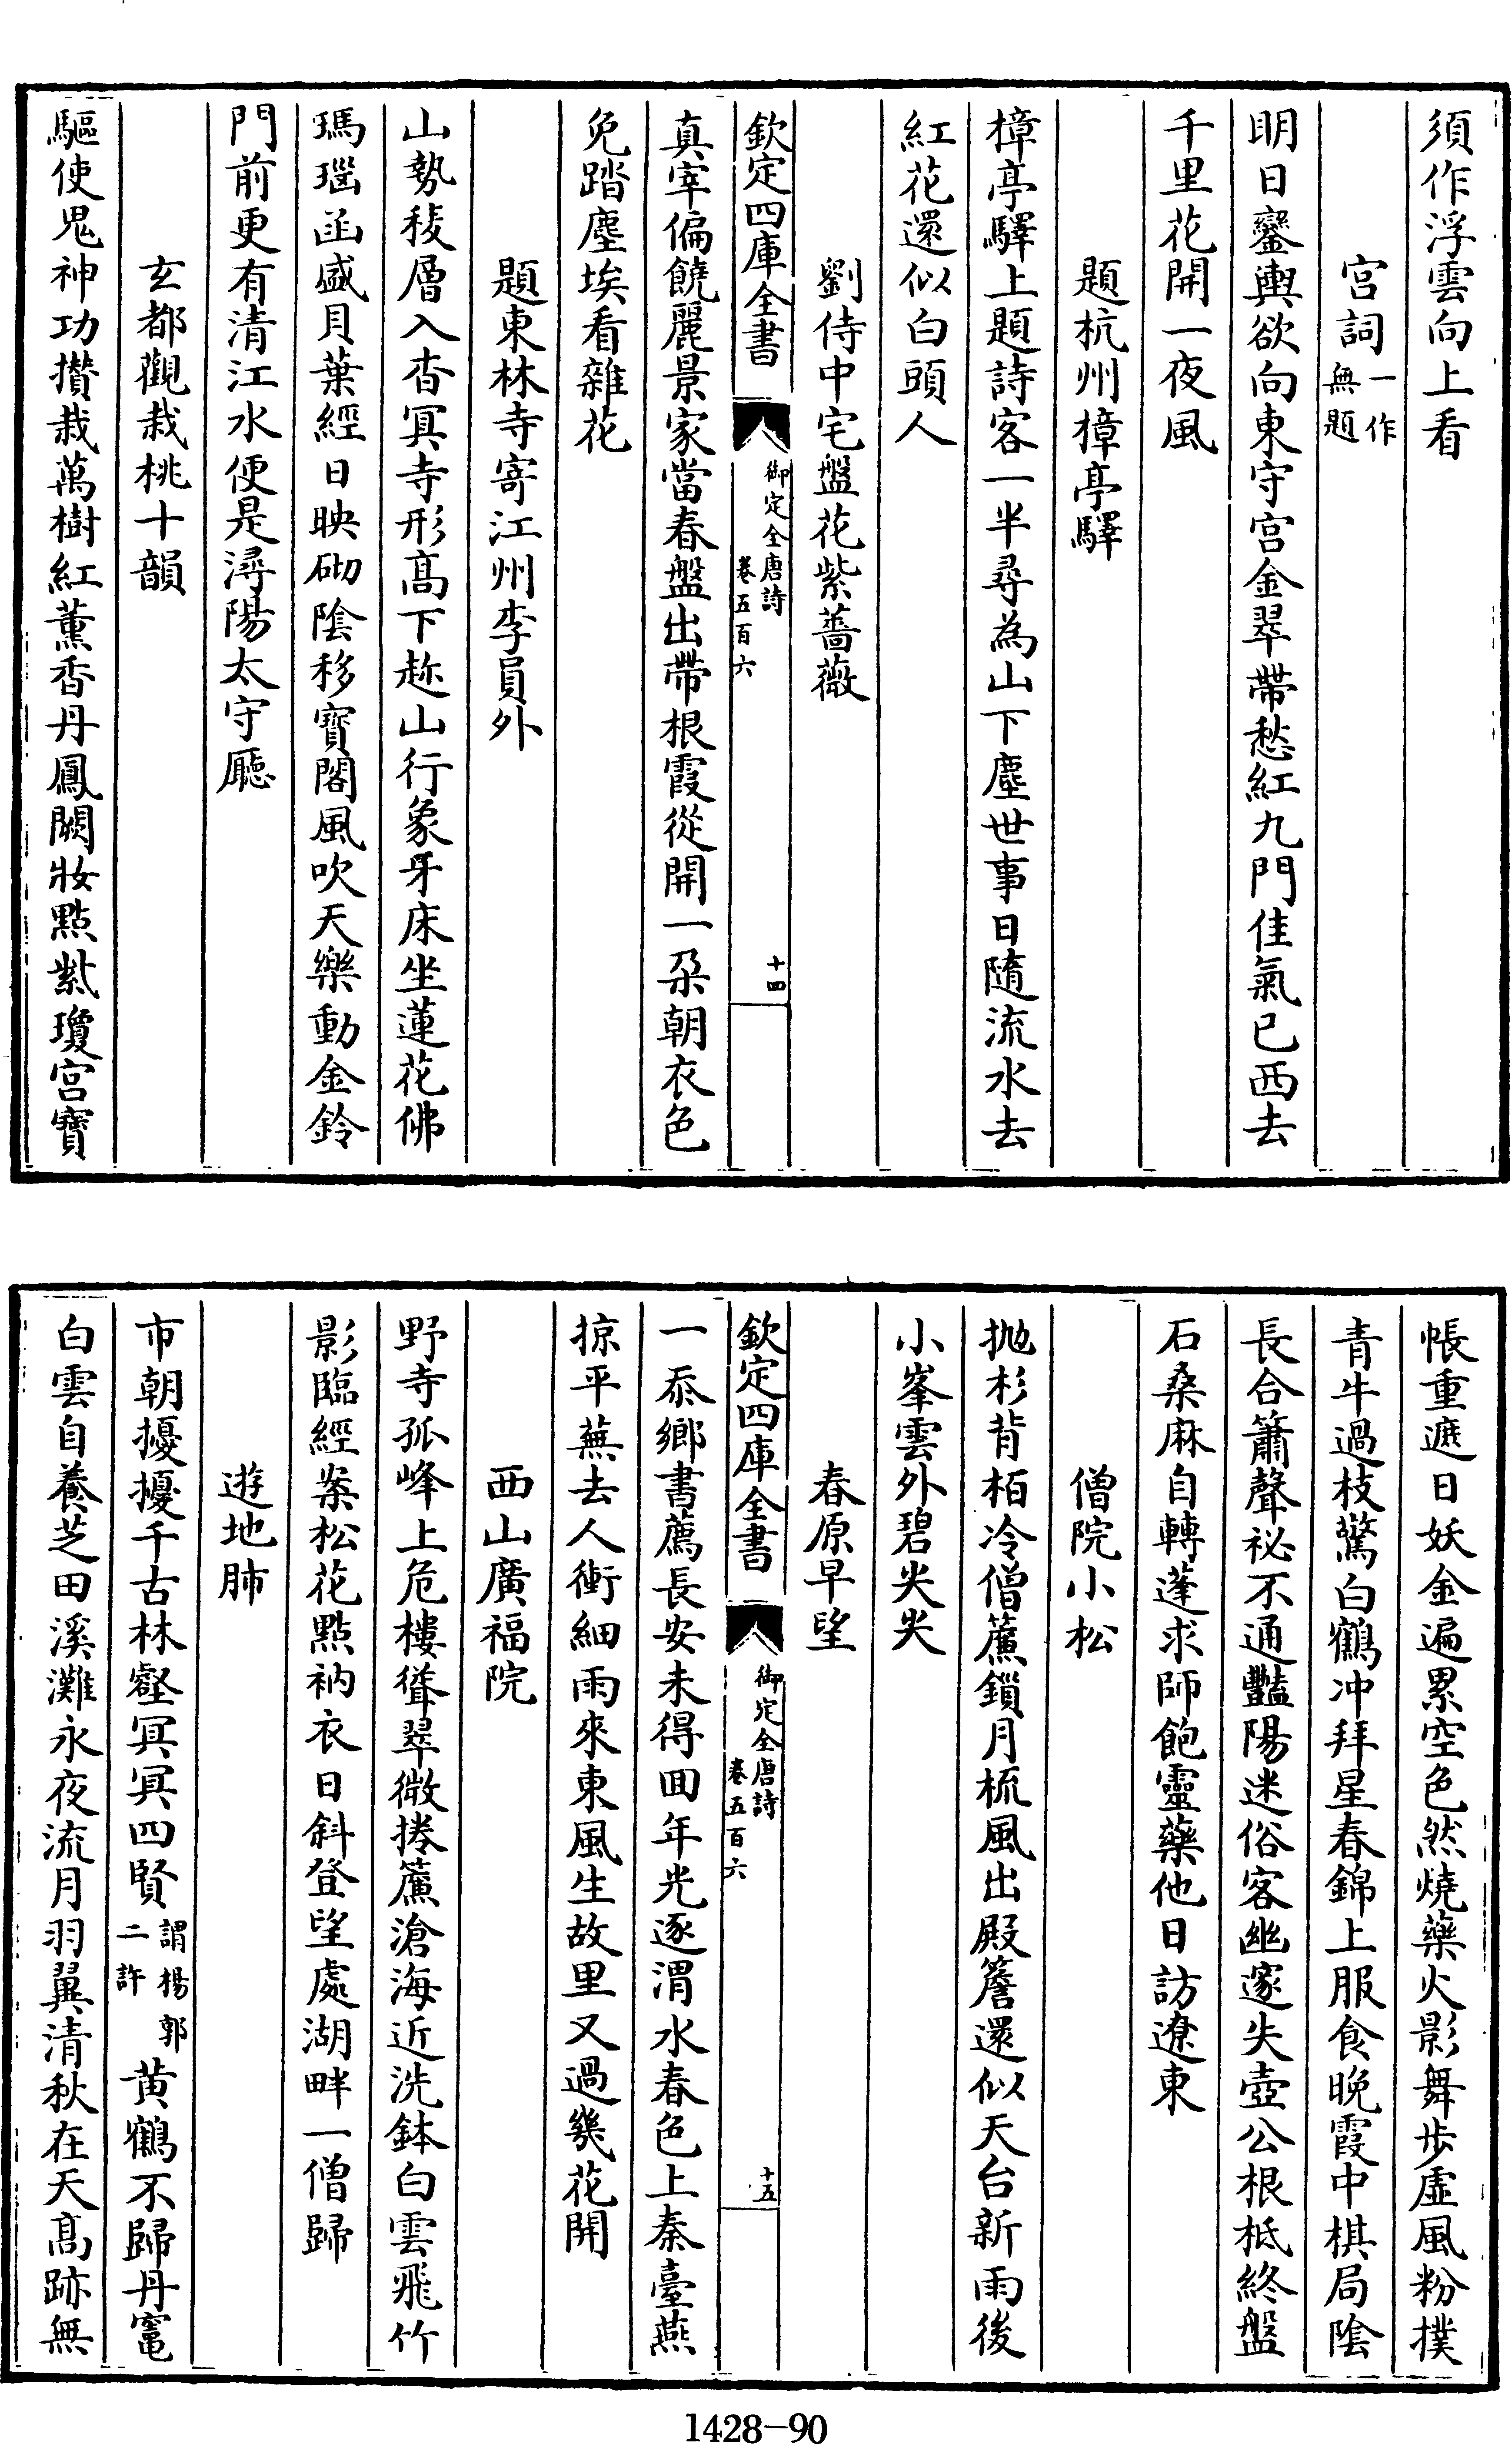 須作浮雲向上看
宫詞一作無題
明日鑾輿欲向東守宫金翠帶愁紅九門佳氣已西去
千里花開一夜風
題杭州樟亭驛
樟亭驛上題詩客一半尋為山下塵世事日隨流水去
紅花還似白頭人
劉侍中宅盤花紫薔薇
欽定四庫全書
御定全唐詩
卷五百六
十四
真宰偏饒麗景家當春盤出帶根霞從開一朶朝衣色
免踏塵埃看雜花
題東林寺寄江州李員外
山勢稜層入杳冥寺形髙下趂山行象牙床坐蓮花佛
瑪瑙函盛貝葉經日映砌陰移寳閣風吹天樂動金鈴
門前更有清江水便是潯陽太守廳
玄都觀栽桃十韻
驅使鬼神功攢栽萬樹紅薰香丹鳳闕妝點紫瓊宫寳
帳重遮日妖金遍累空色然燒藥火影舞歩虚風粉撲
青牛過枝驚白鶴冲拜星春錦上服食晚霞中棋局陰
長合簫聲祕不通豔陽迷俗客幽邃失壺公根柢終盤
石桑麻自轉蓬求師飽靈藥他日訪遼東
僧院小松
抛杉背栢冷僧簾鎖月梳風出殿簷還似天台新雨後
小峯雲外碧尖尖
春原早望
欽定四庫全書
御定全唐詩
卷五百六
十五
一忝鄉書薦長安未得囬年光逐渭水春色上秦臺燕
掠平蕪去人衝細雨來東風生故里又過幾花開
西山廣福院
野寺孤峰上危樓聳翠微捲簾滄海近洗鉢白雲飛竹
影臨經案松花點衲衣日斜登望處湖畔一僧歸
遊地肺
市朝擾擾千古林壑冥冥四賢謂楊郭二許黄鶴不歸丹竈
白雲自養芝田溪灘永夜流月羽翼清秋在天髙跡無
1428-90